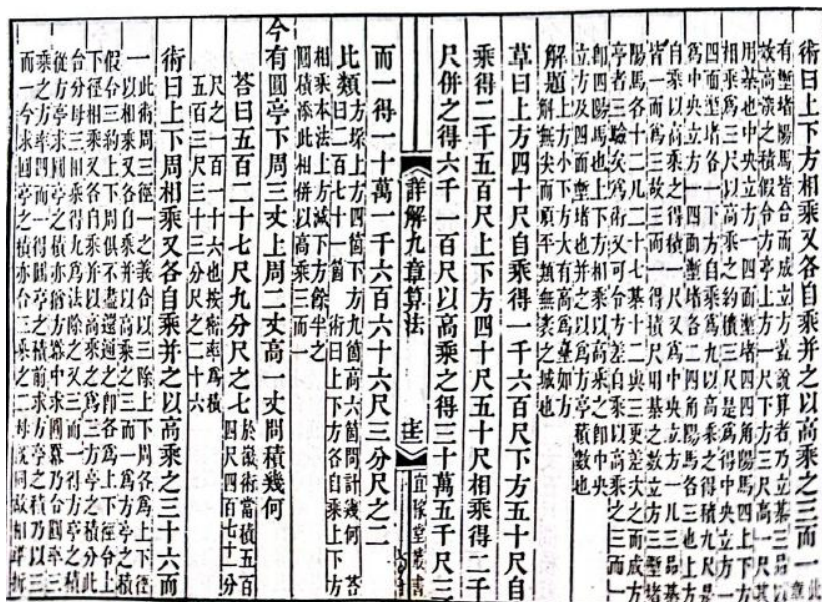 術曰上下方相乘又各自乘并之以高乘之三而一 此章
有塹堵陽馬皆合而成立方蓋說算者乃立棊三品以
效高深之積假令方亭上方一尺下方三尺高一尺其
用棊也中央立方一四面塹堵四四角陽馬四上下方
相乘爲三尺以高乘之約積三尺是爲得中央立方一
四面塹堵各一下方自乘爲九以高乘之得積九尺是
爲中央立方一四面塹堵各二四角陽馬各三也上方
自乘以高乘之得積一尺又爲中央立方一凡三品棊
皆一而爲三故三而一得積尺用棊之數立方三塹堵
陽馬各十二凡二十七棊十二與三更差次之而成方
亭者三驗矣爲術又可令方差自乘以高乘之三而一
即四陽馬也上下方相乘以高乘之即中央
立方及四面塹堵也并之以爲方亭積數也
解題 上方小下方大有高爲臺如方
解無尖而頂平類無丟之城也
草曰上方四十尺自乘得一千六百尺下方五十尺自
乘得二千五百尺上下方四十尺五十尺相乘得二千
尺併之得六千一百尺以高乘之得三十萬五千尺三
詳解九章算法
宜稼堂叢書
而一得一十萬一千六百六十六尺三分尺之二
比類 方垛上方四箇下方九箇高六箇問計幾何 答
曰二百七十一箇 術曰上下方各自乘上下方
相乘本法上方減下方餘半之
圓積添此相併以高乘三而一
今有圓亭下周三丈上周二丈高一丈問積幾何
答曰五百二十七尺九分尺之七 於徽術當積五百
四尺四百七十一分
尺之一百一十六也按密率爲積
五百三尺三十三分尺之二十六
術曰上下周相乘又各自乘并之以高乘之三十六而
一 此術周三徑一之義合以三除上下周各爲上下徑
以相乘又各自乘并以高乘之三而一爲方亭之積
假令三約上下周俱不盡還通之即各爲上下徑令上
下徑相乘又各自乘并以高乘之爲三方亭之積分此
合分母三相乘得九爲法除之又三而一得方亭之積
從方亭求圓亭之積亦猶方冪中求圓冪乃令圓率三
乘之方率四而一得圓亭之積前求方亭之積乃以三
而一今求圓亭之積亦合三乘之二母既同故相準折